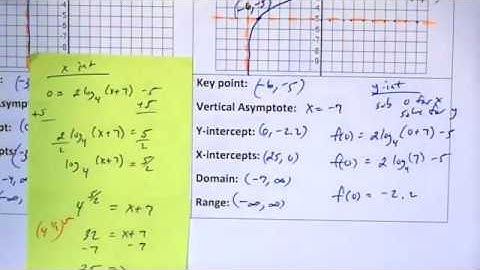 (-6,-5)
x int
0 = 2 log₄ (x+7) - 5
+5 +5
2 log₄ (x+7) = 5
2 2
log₄ (x+7) = 5/2
4^5/2 = x+7
32 = x+7
-7 -7
25 =
Key point: (-6, -5)
Vertical Asymptote: x = -7
Y-intercept: (0, -2.2)
X-intercepts: (25, 0)
Domain: (-7, ∞)
Range: (-∞, ∞)
y-int
sub 0 for x
solve for y
f(0) = 2 log₄ (0+7) - 5
f(0) = 2 log₄ (7) - 5
f(0) = -2.2